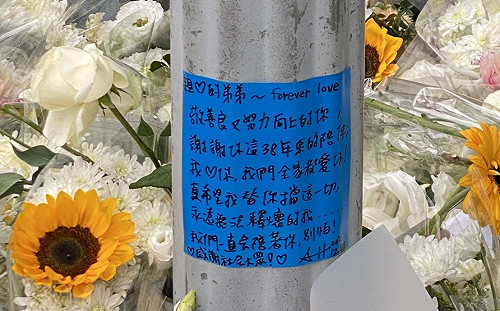 親♡的弟弟~ forever love
敬善良又努力向上的你!
謝謝你這38年來的陪伴,
我♡你,我們全家都愛你!
真希望我替你擋這一切,
永遠無法釋懷的我.....
我們一直會陪著你,別怕!
♡感謝社會大眾!♡